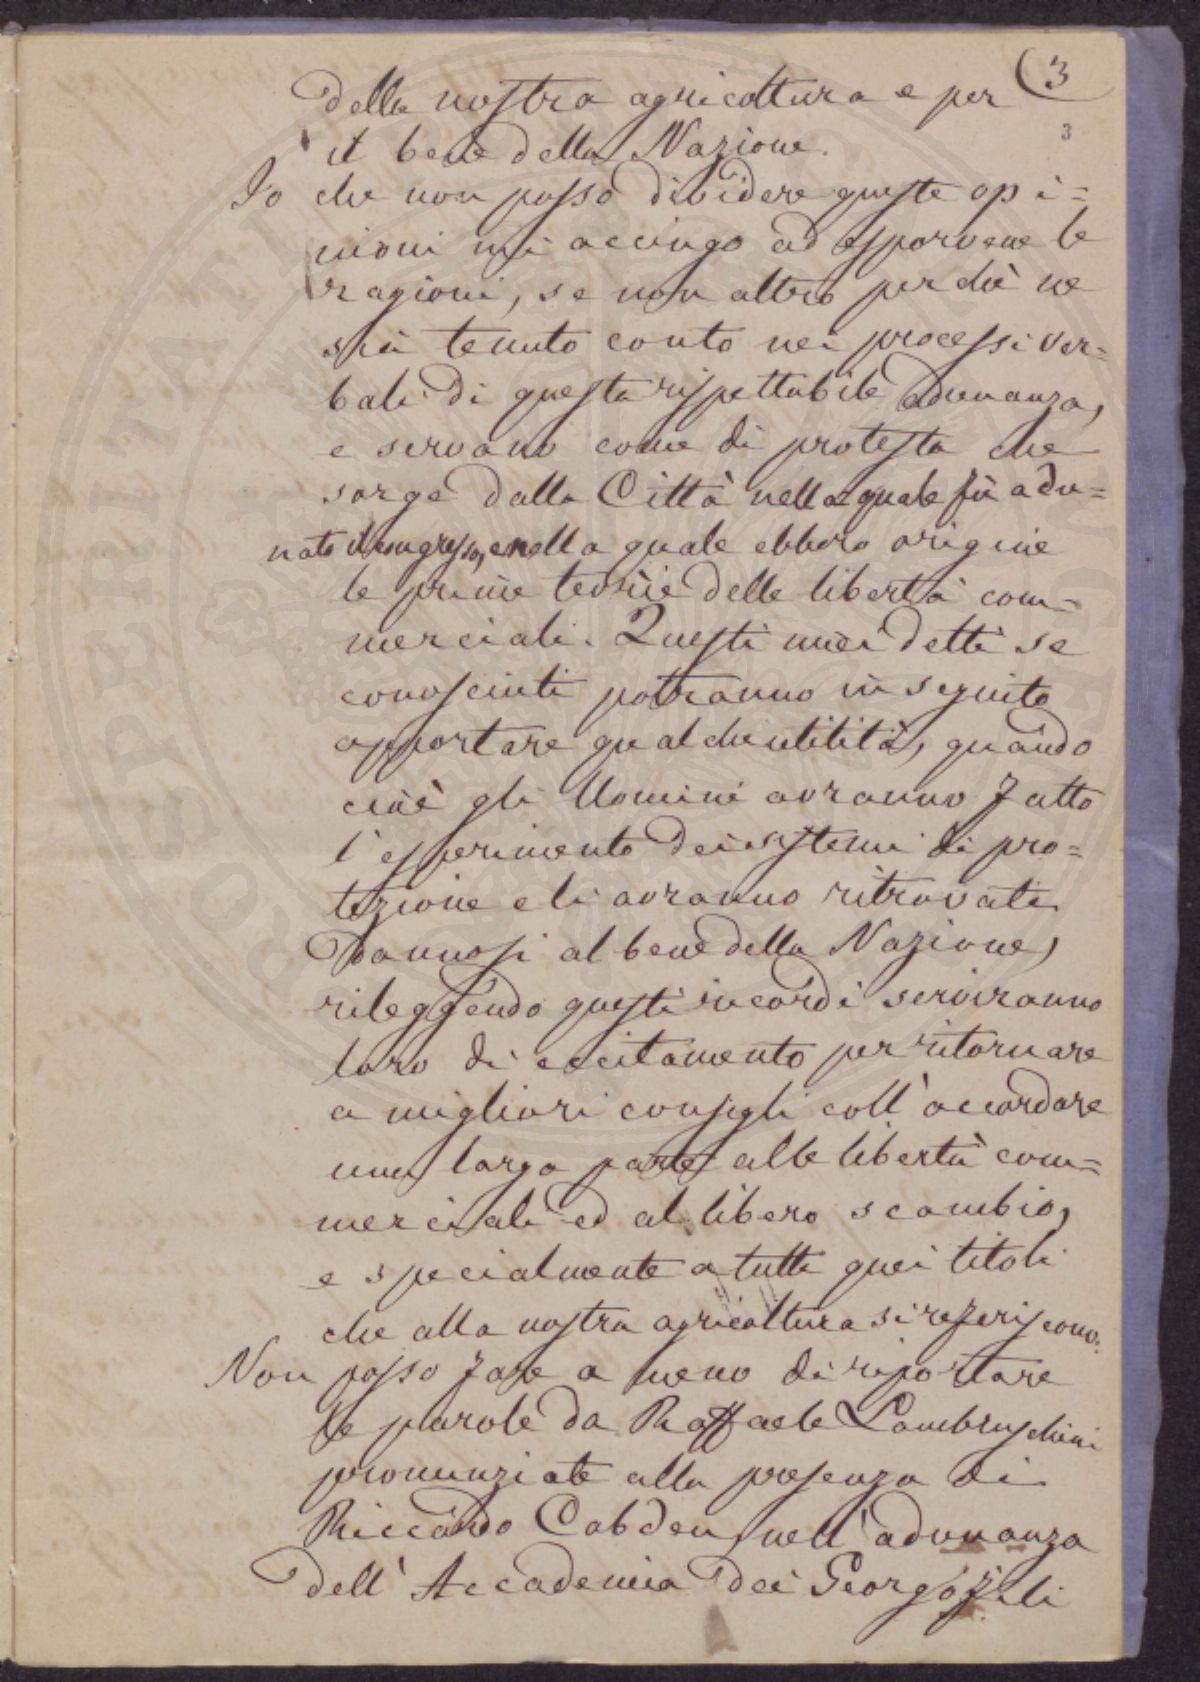 3
3
della nostra agricoltura e per
il bene della Nazione.
Io che non posso dividere queste opi=
nioni mi accingo ad esporvene le
ragioni, se non altro perchè ne
sia tenuto conto nei processi ver=
bali di questa rispettabile adunanza,
e servano come di protesta che
sorge dalla Città nella quale fù adu=
nato il congresso, e nella quale ebbero origine
le prime teorie delle libertà com=
merciali. Questi miei detti se
conosciuti potranno in seguito
apportare qualche utilità, quando
cioè gli Uomini avranno fatto
l'esperimento dei sistemi di pro=
tezione e li avranno ritrovati
dannosi al bene della Nazione,
rileggendo questi ricordi serviranno
loro di eccitamento per ritornare
a migliori consigli coll'accordare
una larga parte alle libertà com=
merciali ed al libero scambio,
e specialmente a tutti quei titoli
che alla nostra agricoltura si referiscono.
Non posso fare a meno di riportare
le parole da Raffaele Lambruschini
pronunziate alla presenza di
Riccardo Cobden, nell'adunanza
dell'Accademia dei Georgofili